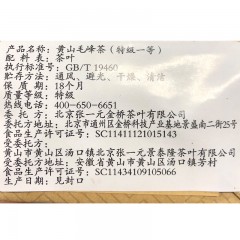 产品名称：黄山毛峰茶（特级一等）
配料表：茶叶
执行标准号：GB/T 19460
贮存方法：通风、避光、干燥、清洁
保质期：18个月
质量等级：特级
热线电话：400-650-6651
委托方：北京张一元金桥茶叶有限公司
委托方地址：北京市通州区金桥科技产业基地景盛南二街25号
食品生产许可证号：SC11411121015143
受委托方：
黄山市黄山区汤口镇张一元景泰隆茶叶有限公司
受委托方地址：安徽省黄山市黄山区汤口镇芳村
食品生产许可证号：SC11434109105066
生产日期：见封口